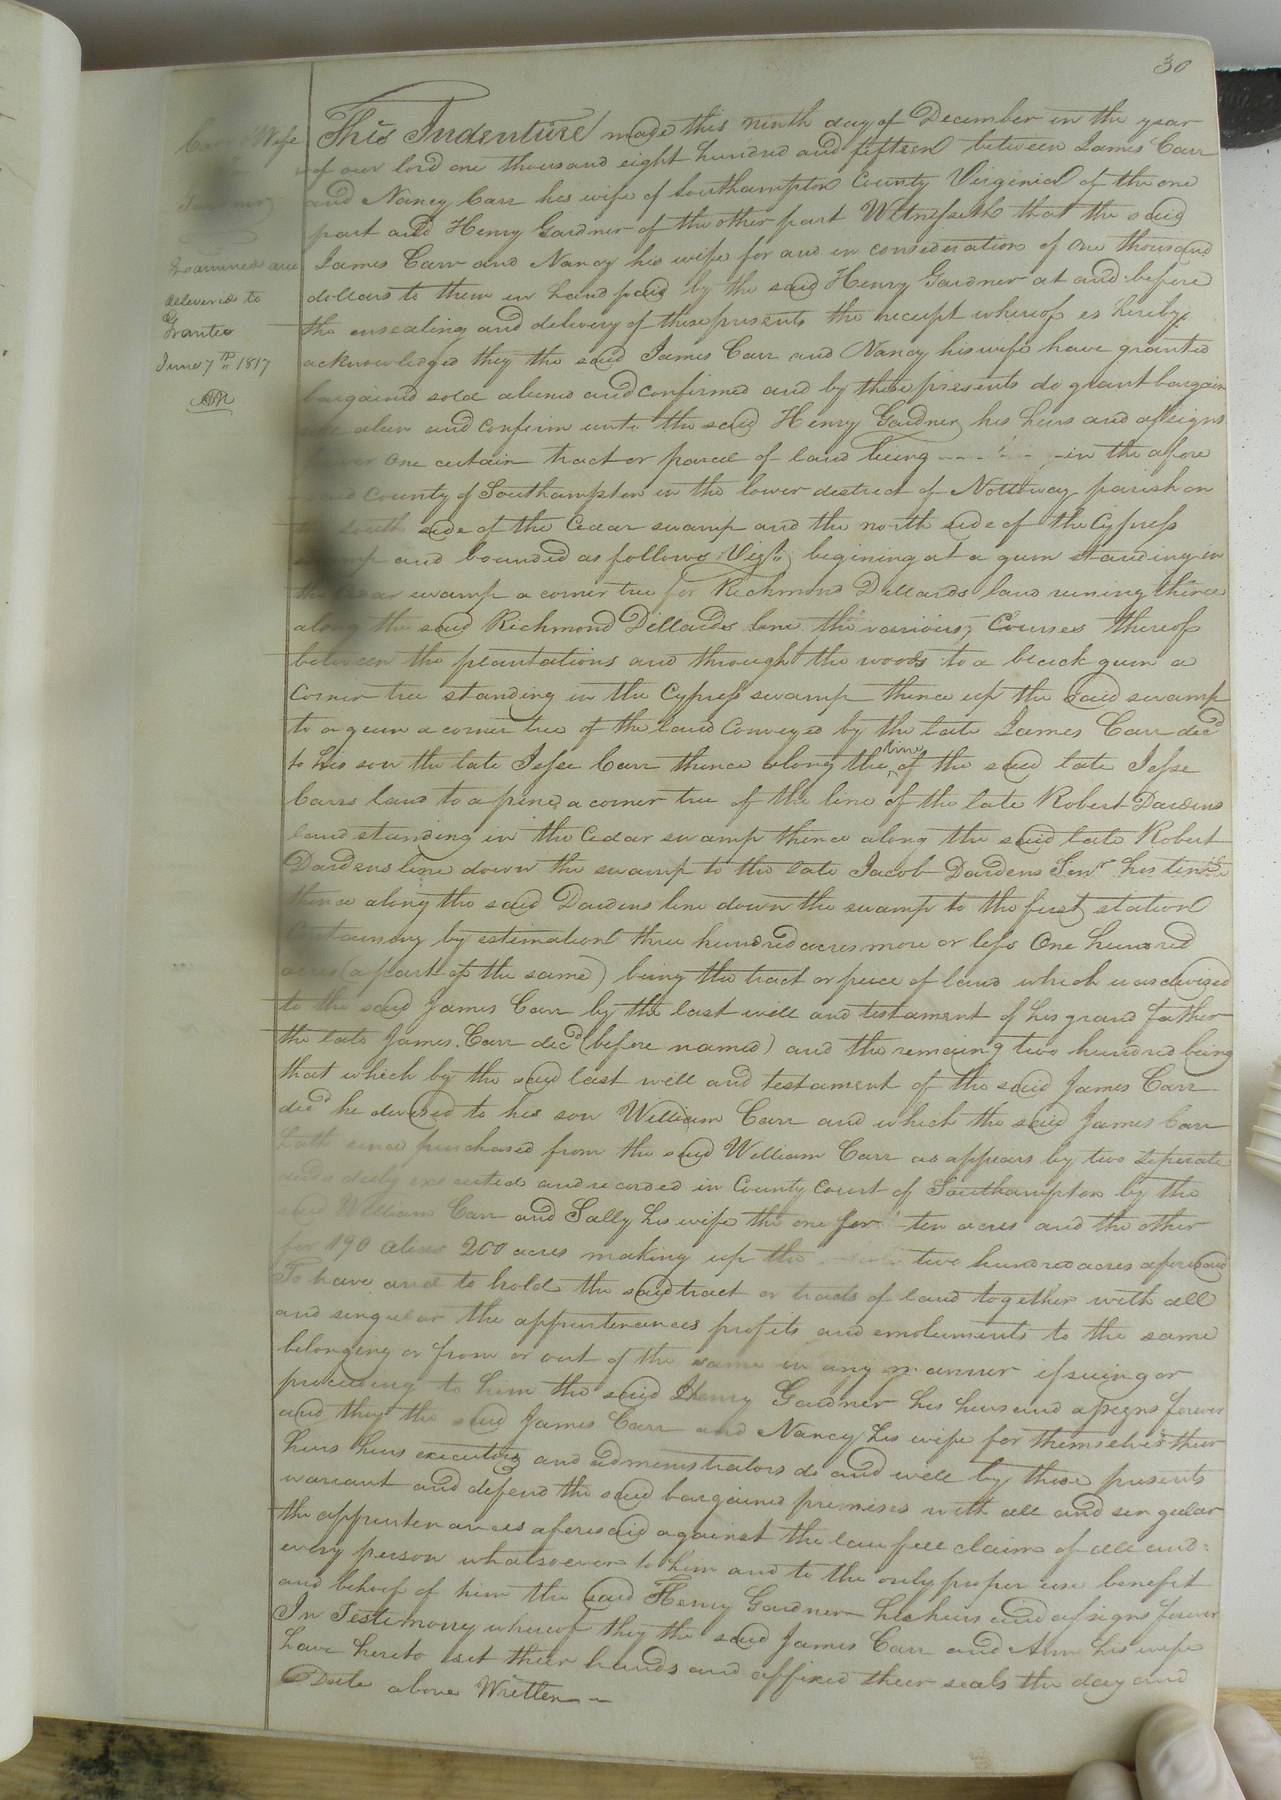 30
Carr & Wife
Gardner
Examined and
delivered to
Grantee
June 7th 1817
AM
This Indenture made this ninth day of December in the year
of our lord one thousand eight hundred and fifteen between James Carr
and Nancy Carr his wife of Southampton County Virginia of the one
part and Henry Gardner of the other part Witnesseth that the said
James Carr and Nancy his wife for and in consideration of One thousand
dollars to them in hand paid by the said Henry Gardner at and before
the ensealing and delivery of these presents the receipt whereof is hereby
acknowledged they the said James Carr and Nancy his wife have granted
bargained sold aliened and confirmed and by these presents do grant bargain
alien and confirm unto the said Henry Gardner his heirs and assigns
One certain tract or parcel of land lieing - - - - in the afore
said County of Southampton in the lower destrict of Nottoway parish on
the south side of the Cedar swamp and the north side of the Cypress
swamp and bounded as follows Vizt. begining at a gum standing in
the Cedar swamp a corner tree for Richmond Dillards land runing thence
along the said Richmond Dillards line the various Courses thereof
between the plantations and through the woods to a black gum a
Corner tree standing in the Cypress swamp thence up the said swamp
to a gum a corner tree of the land Conveyed by the late James Carr decd
to his son the late Jesse Carr thence along the line of the said late Jesse
Carrs land to a pine a corner tree of the line of the late Robert Dardens
land standing in the Cedar swamp thence along the said late Robert
Dardens line down the swamp to the late Jacob Dardens Senr. his line
thence along the said Dardens line down the swamp to the first station
Containing by estemation three hundred acres more or less One hundred
acres (a part of the same) being the tract or peice of land which was devised
to the said James Carr by the last will and testament of his grand father
the late James Carr decd (before named) and the remaing two hundred being
that which by the said last will and testament of the said James Carr
decd he devised to his son William Carr and which the said James Carr
hath since purchased from the said William Carr as appears by two seperate
deeds duly executed and recorded in County Court of Southampton by the
said William Carr and Sally his wife the one for ten acres and the other
for 190 alias 200 acres making up the two hundred acres aforesaid
To have and to hold the said tract or tracts of land together with all
and singular the appurtenances profits and emoluments to the same
belonging or from or out of the same in any manner issuing or
proceeding to him the said Henry Gardner his heirs and assigns forever
and they the said James Carr and Nancy his wife for themselves their
heirs heirs executors and administrators do and will by these presents
warrant and defend the said bargained premises with all and singular
the appurtenances aforesaid against the lawfull claims of all and
every person whatsoever to him and to the only proper use benefit
and behoof of him the said Henry Gardner his heirs and assigns forever
In Testimony whereof they the said James Carr and Ann his wife
have hereto set their hands and affixed their seals the day and
Date above Written